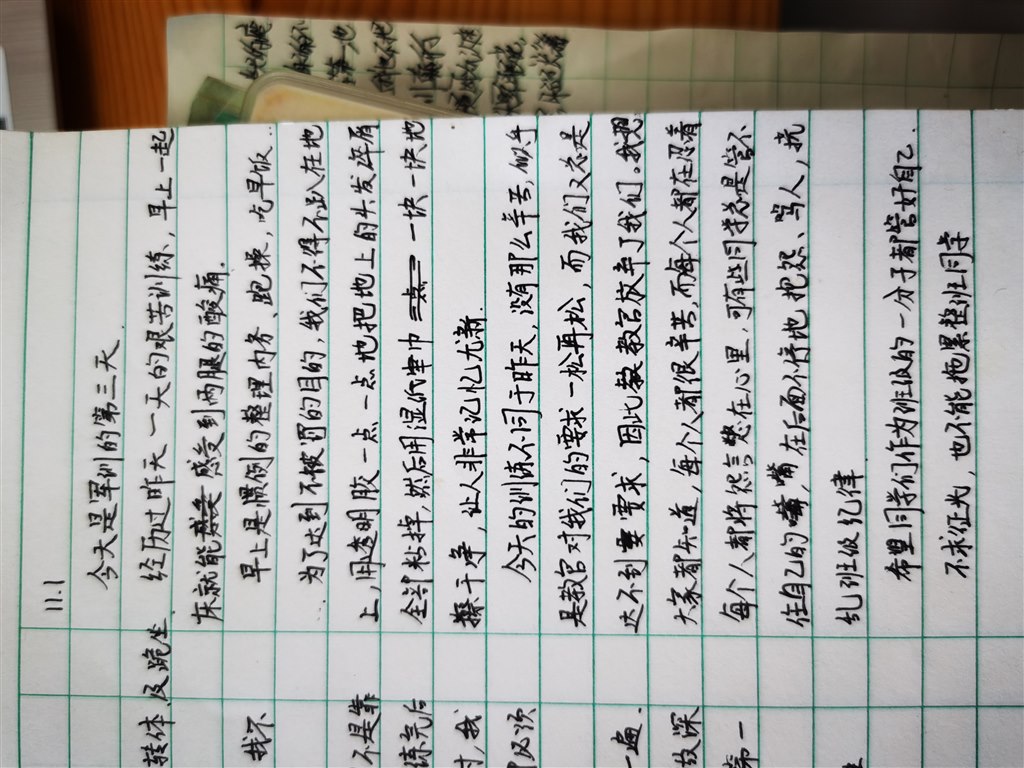 11.1
今天是军训的第三天.
经历过昨天一天的艰苦训练,早上一起
床就能感受到两腿的酸痛.
早上是惯例的整理内务、跑操,吃早饭..
为了达到不被罚的目的,我们不得不趴在地
上,用透明胶一点一点地把地上的头发碎屑
全部粘掉,然后用湿纸巾一块一块地
擦干净,让人非常记忆尤新.
今天的训练不同于昨天,没有那么辛苦,似乎
是教官对我们的要求一松再松,而我们又总是
达不到要求,因此教官放弃了我们。我
大家都知道,每个人都很辛苦,而每个人都在忍着
每个人都将怨言憋在心里,可有些同学总是管不
住自己的嘴,在后面不停地抱怨、骂人,扰
乱班级纪律
希望同学们作为班级的一分子都管好自己.
不求征光,也不能拖累整班同学
转体,及跪坐
我不
不是靠
练完后
寸,我
必须
一遍.
故深
第一